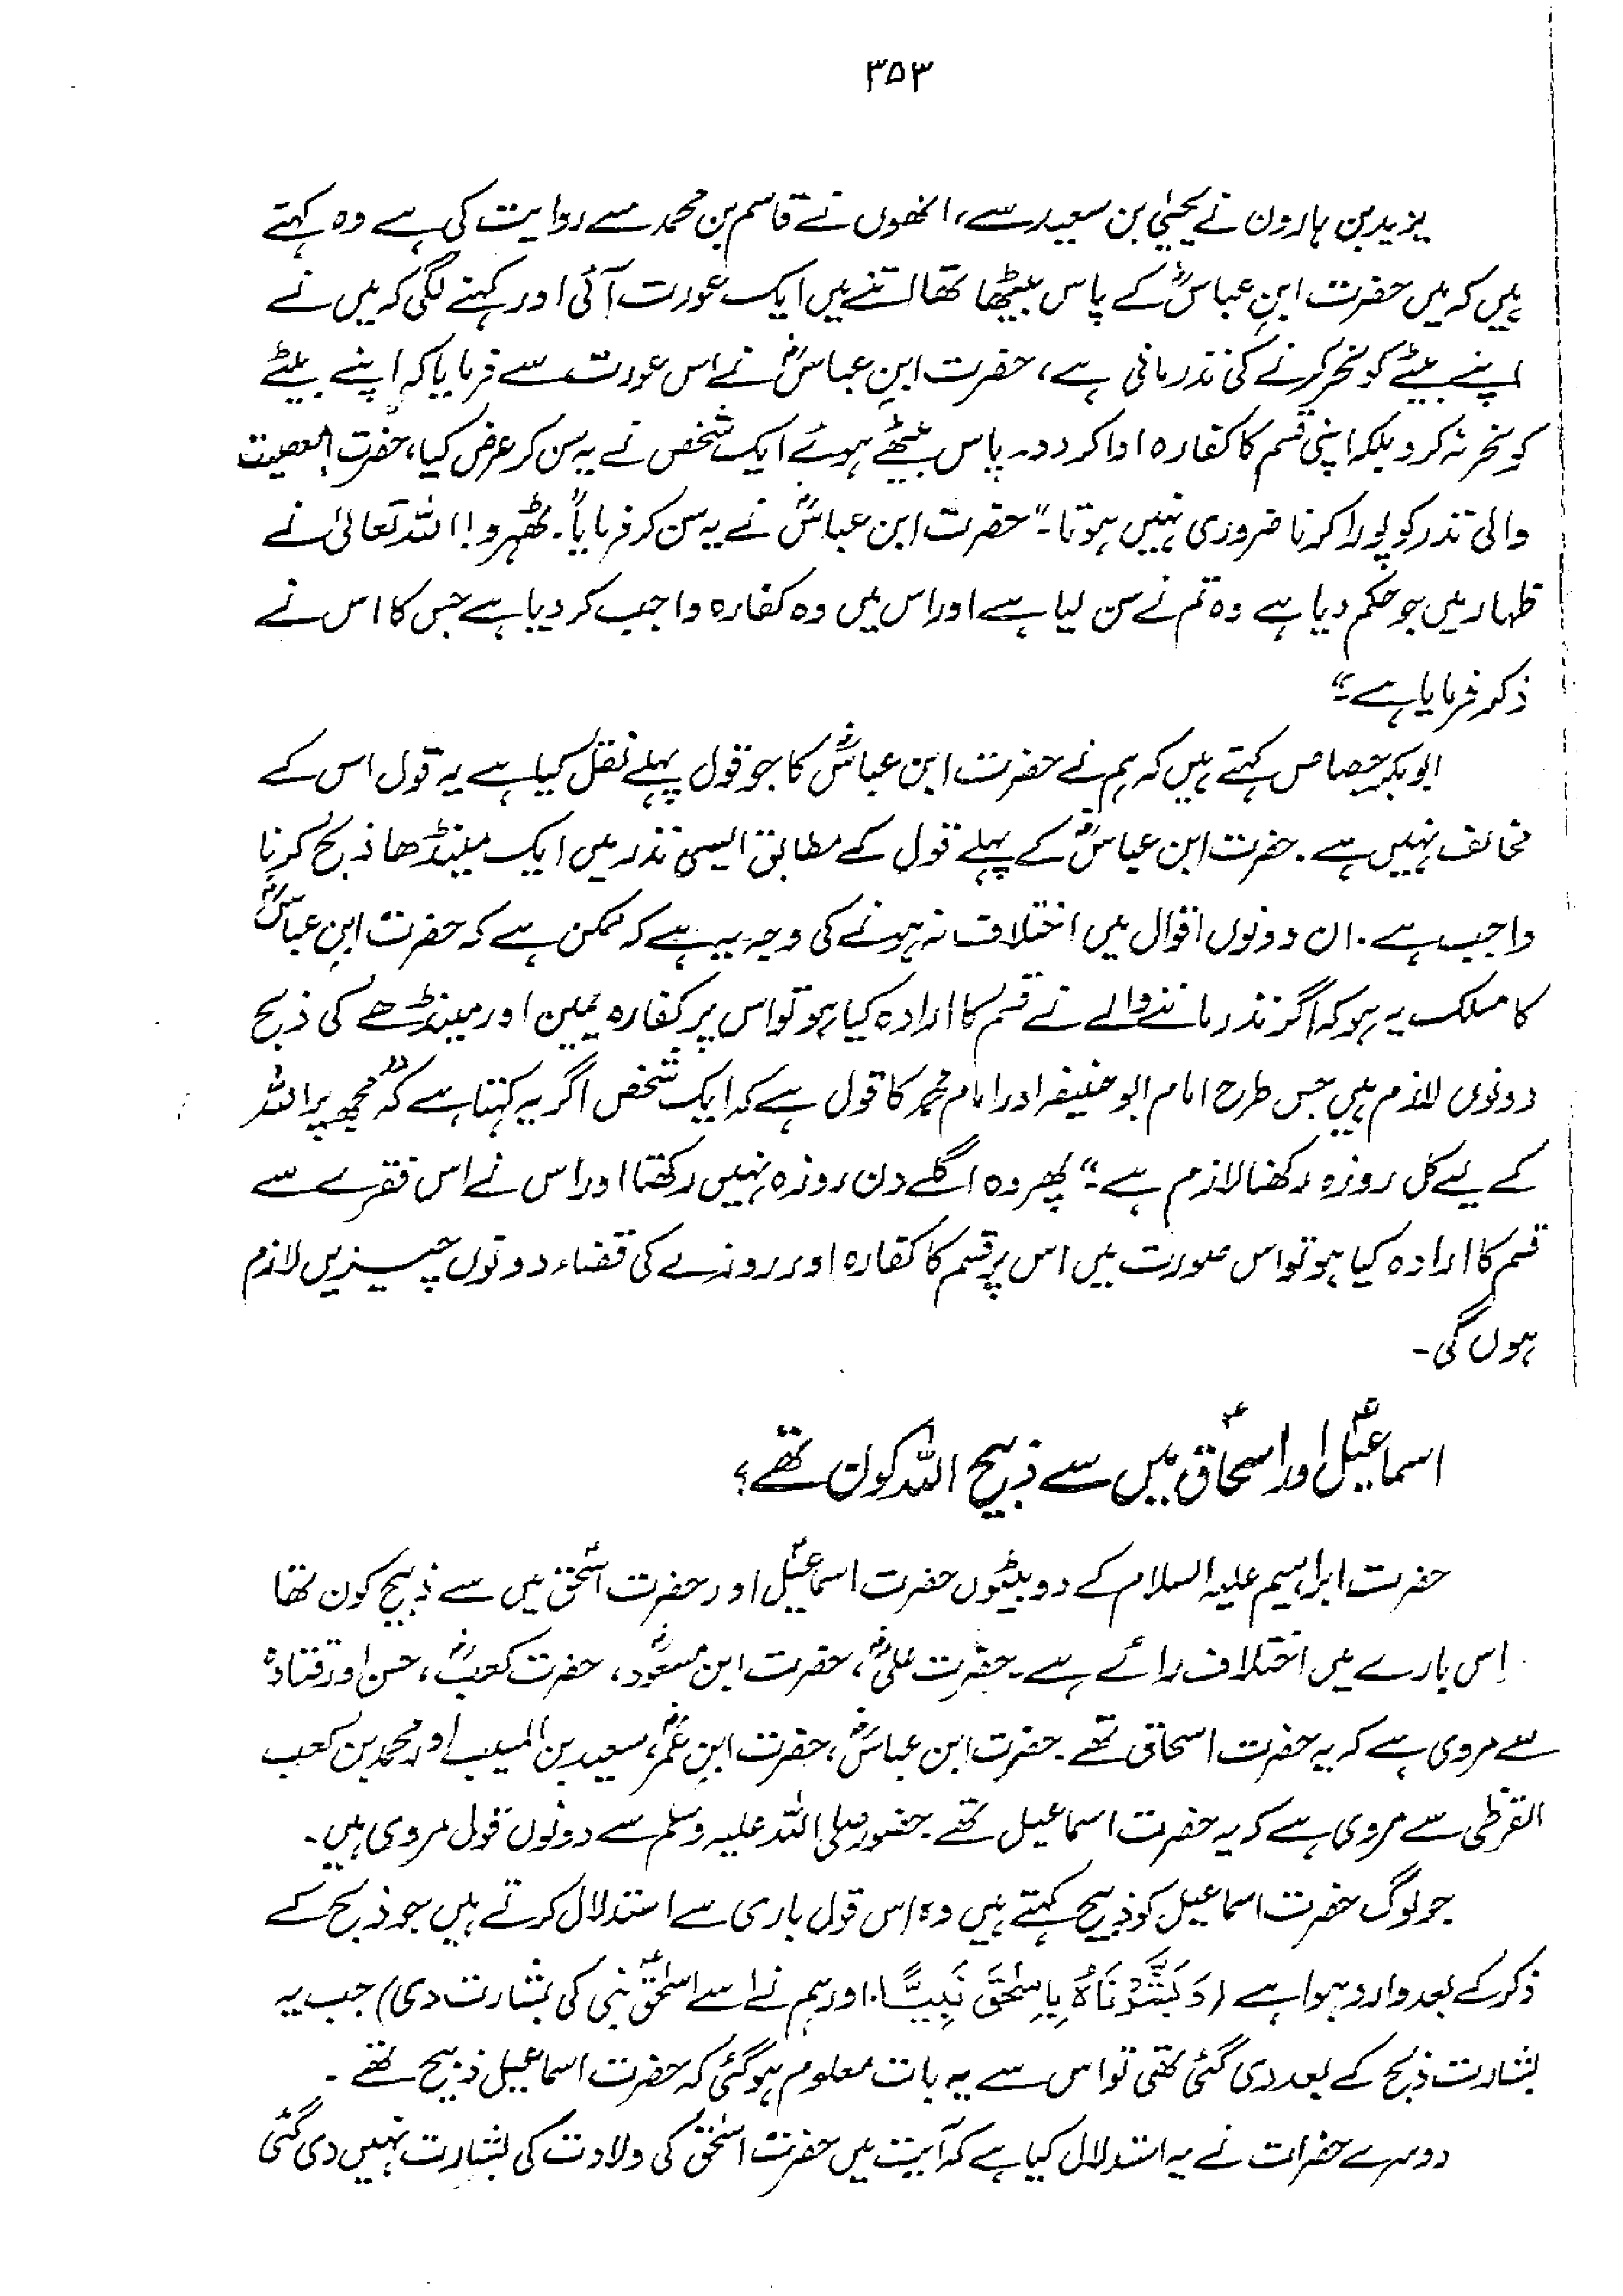 ۳۵۳
یزید بن ہارون نے یحییٰ بن سعید سے، انھوں نے قاسم بن محمد سے روایت کی ہے وہ کہتے
ہیں کہ میں حضرت ابنِ عباسؓ کے پاس بیٹھا تھا اتنے میں ایک عورت آئی اور کہنے لگی کہ میں نے
اپنے بیٹے کو نحر کرنے کی نذر مانی ہے، حضرت ابنِ عباسؓ نے اس عورت سے فرمایا کہ اپنے بیٹے
کو نحر نہ کرو بلکہ اپنی قسم کا کفارہ ادا کر دو۔ پاس بیٹھے ہوئے ایک شخص نے یہ سن کر عرض کیا، حضرت! معصیت
والی نذر کو پورا کرنا ضروری نہیں ہوتا۔“ حضرت ابن عباسؓ نے یہ سن کر فرمایا”۔ ٹھہرو! اللہ تعالیٰ نے
ظہار میں جو حکم دیا ہے وہ تم نے سن لیا ہے اور اس میں وہ کفارہ واجب کر دیا ہے جس کا اس نے
ذکر فرمایا ہے۔“
ابو بکر جصاص کہتے ہیں کہ ہم نے حضرت ابن عباسؓ کا جو قول پہلے نقل کیا ہے یہ قول اس کے
مخالف نہیں ہے۔ حضرت ابن عباسؓ کے پہلے قول کے مطابق ایسی نذر میں ایک مینڈھا ذبح کرنا
واجب ہے۔ ان دونوں اقوال میں اختلاف نہ ہونے کی وجہ یہ ہے کہ ممکن ہے کہ حضرت ابنِ عباسؓ
کا مسلک یہ ہو کہ اگر نذر ماننے والے نے قسم کا ارادہ کیا ہو تو اس پر کفارہ یمین اور مینڈھے کی ذبح
دونوں لازم ہیں جس طرح امام ابو حنیفہ اور امام محمد کا قول ہے کہ ایک شخص اگر یہ کہتا ہے کہ ”مجھ پر اللہ
کے لیے کل روزہ رکھنا لازم ہے۔“ پھر وہ اگلے دن روزہ نہیں رکھتا اور اس نے اس فقرے سے
قسم کا ارادہ کیا ہو تو اس صورت میں اس پر قسم کا کفارہ اور روزے کی قضاء دونوں چیزیں لازم
ہوں گی۔
اسماعیلؑ اور اسحاقؑ میں سے ذبیح اللہ کون تھے؟
حضرت ابراہیم علیہ السلام کے دو بیٹوں حضرت اسماعیلؑ اور حضرت اسحٰقؑ میں سے ذبیح کون تھا
اِس بارے میں اختلاف رائے ہے۔ حضرت علیؓ، حضرت ابن مسعودؓ، حضرت کعبؓ، حسن اور قتادہؒ
سے مروی ہے کہ یہ حضرت اسحاق تھے۔ حضرت ابن عباسؓ، حضرت ابنِ عمرؓ، سعید بن المسیب اور محمد بن کعب
القرظی سے مروی ہے کہ یہ حضرت اسماعیل تھے۔ حضور صلی اللہ علیہ وسلم سے دونوں قول مروی ہیں۔
جو لوگ حضرت اسماعیل کو ذبیح کہتے ہیں وہ اس قول باری سے استدلال کرتے ہیں جو ذبح کے
ذکر کے بعد وارد ہوا ہے (وَبَشَّرْنَاهُ بِاِسْحٰقَ نَبِيًّا۔ اور ہم نے اسے اسحٰقؑ نبی کی بشارت دی) جب یہ
بشارت ذبح کے بعد دی گئی تھی تو اس سے یہ بات معلوم ہو گئی کہ حضرت اسماعیل ذبیح تھے۔
دوسرے حضرات نے یہ استدلال کیا ہے کہ آیت میں حضرت اسحٰق کی ولادت کی بشارت نہیں دی گئی